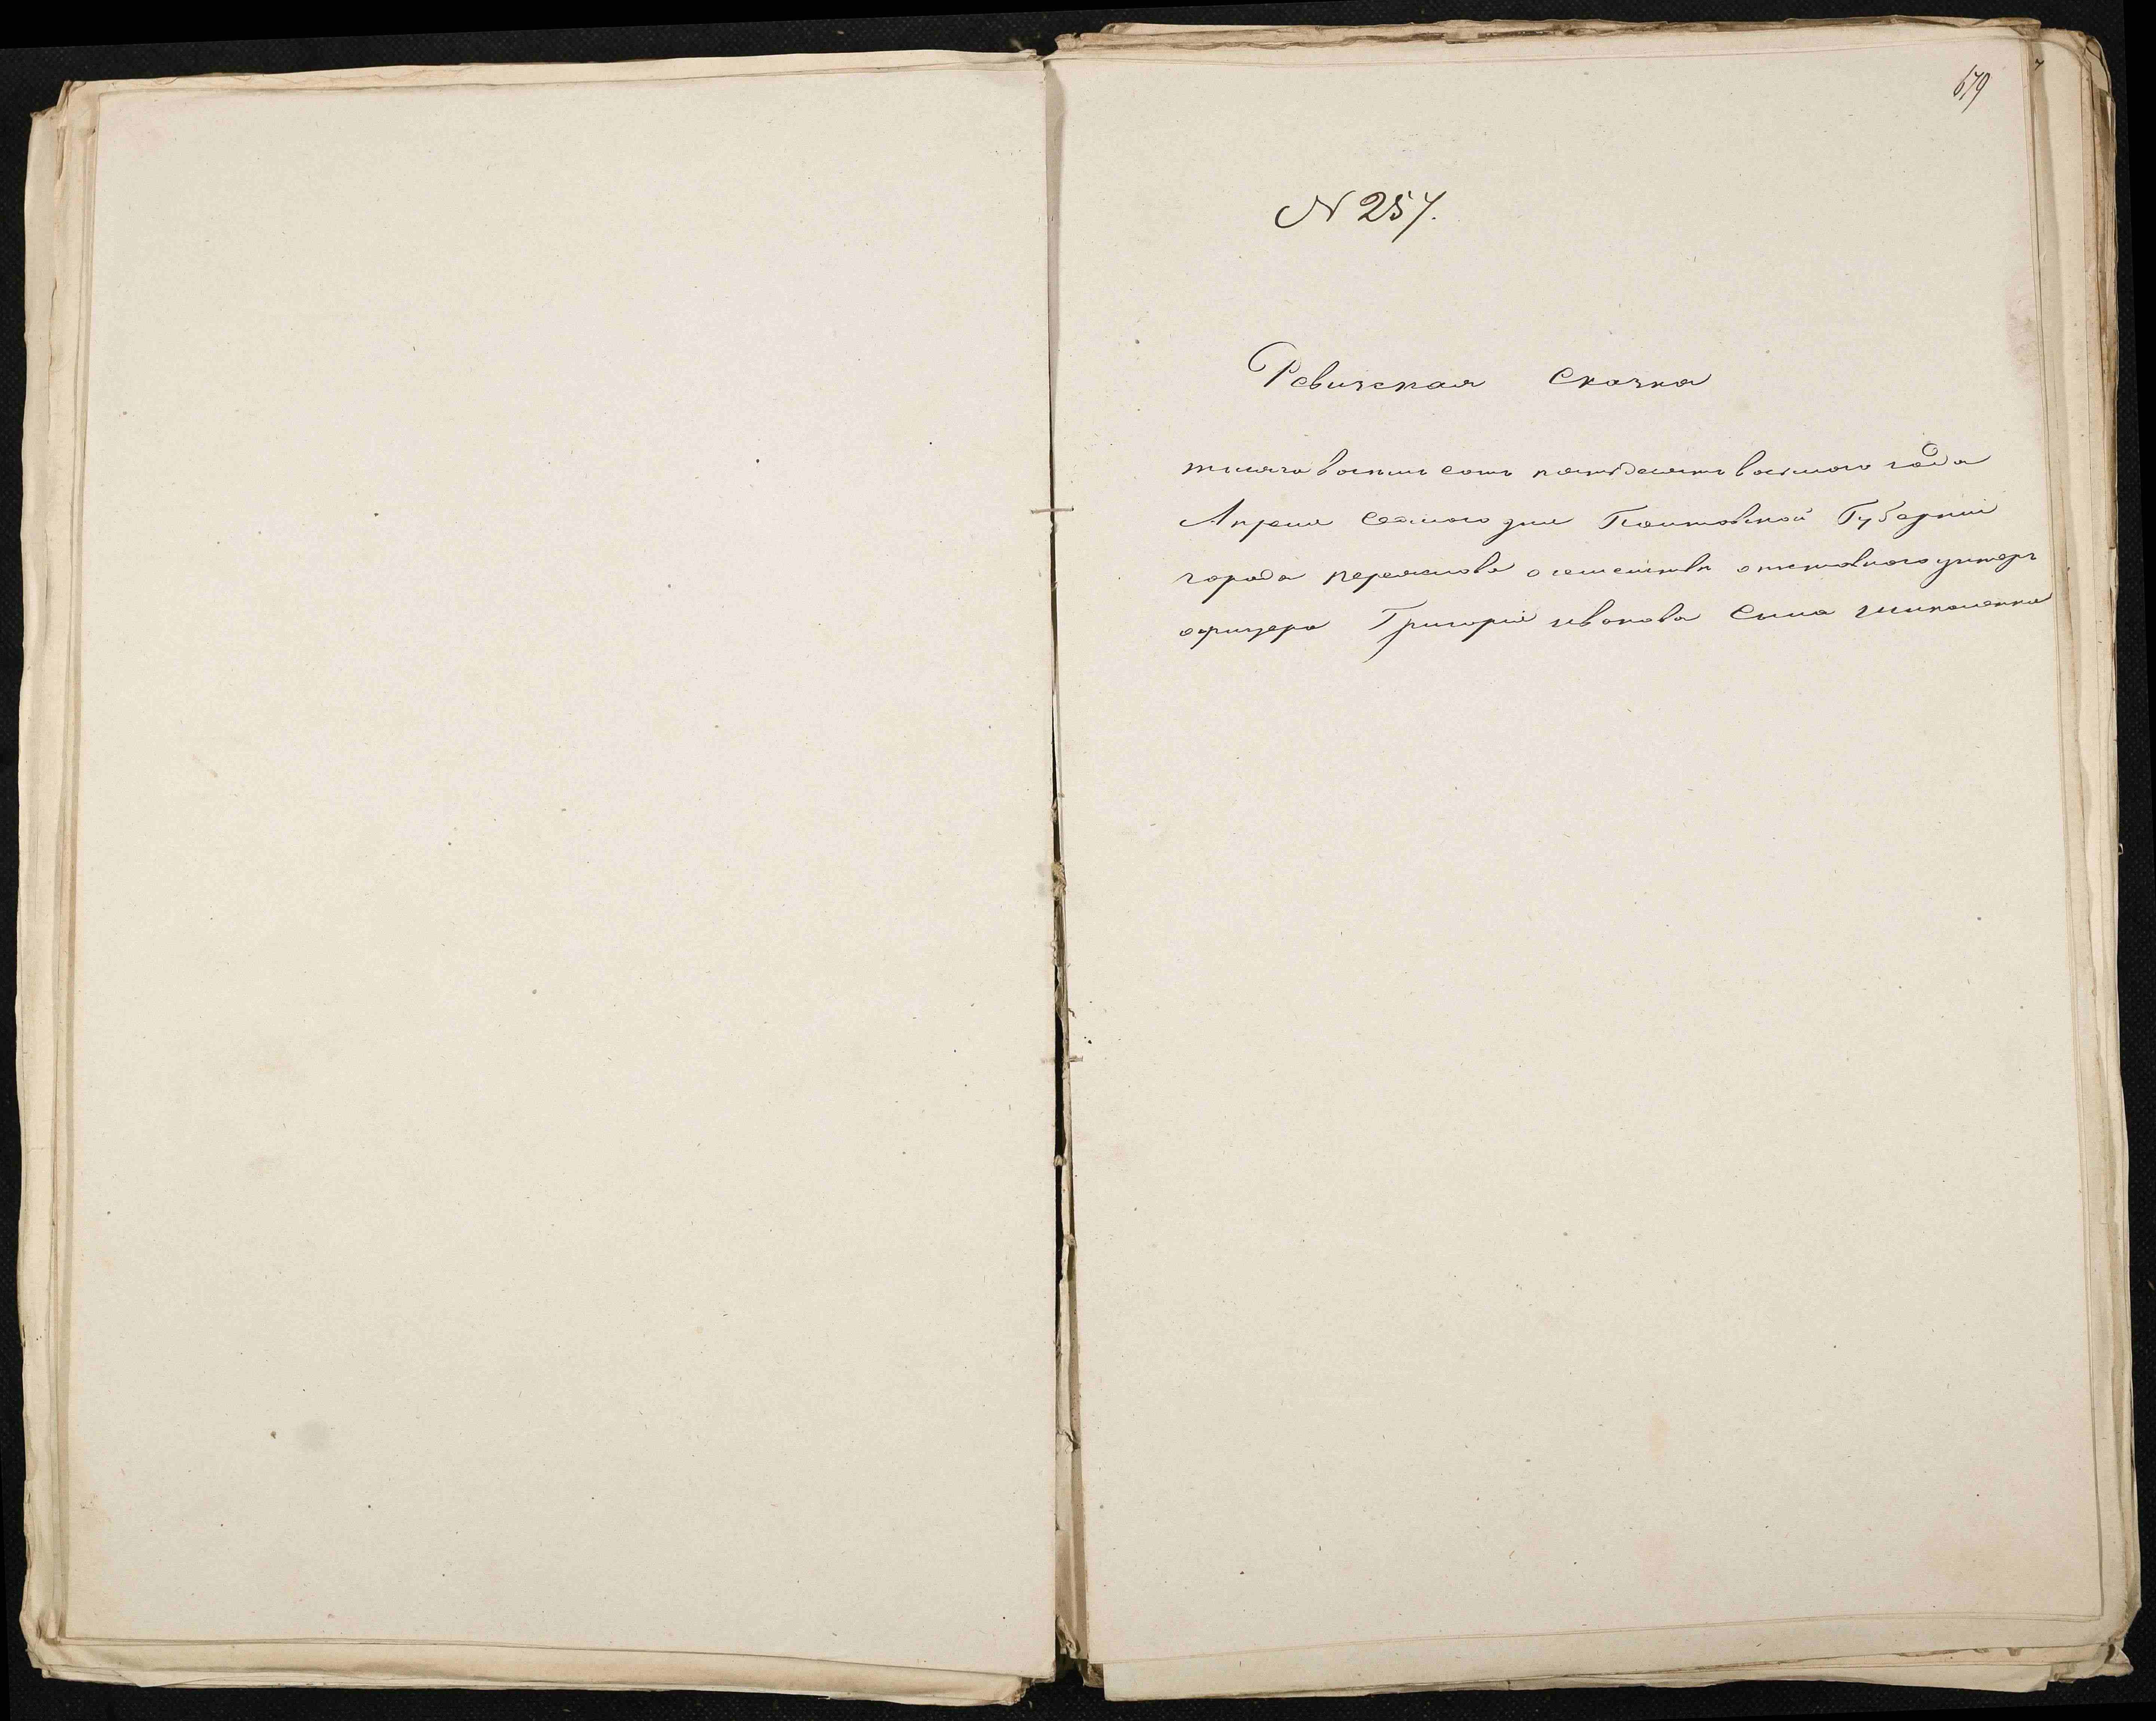 679
N 257.
Ревизская Сказка
тысяча восемь сотъ пятьдесятъ восьмого года
Апреля Седмого дня Полтовской Губерніи
города переяслова о семействе отставного унтеръ
офицера Григорія иванова Сына